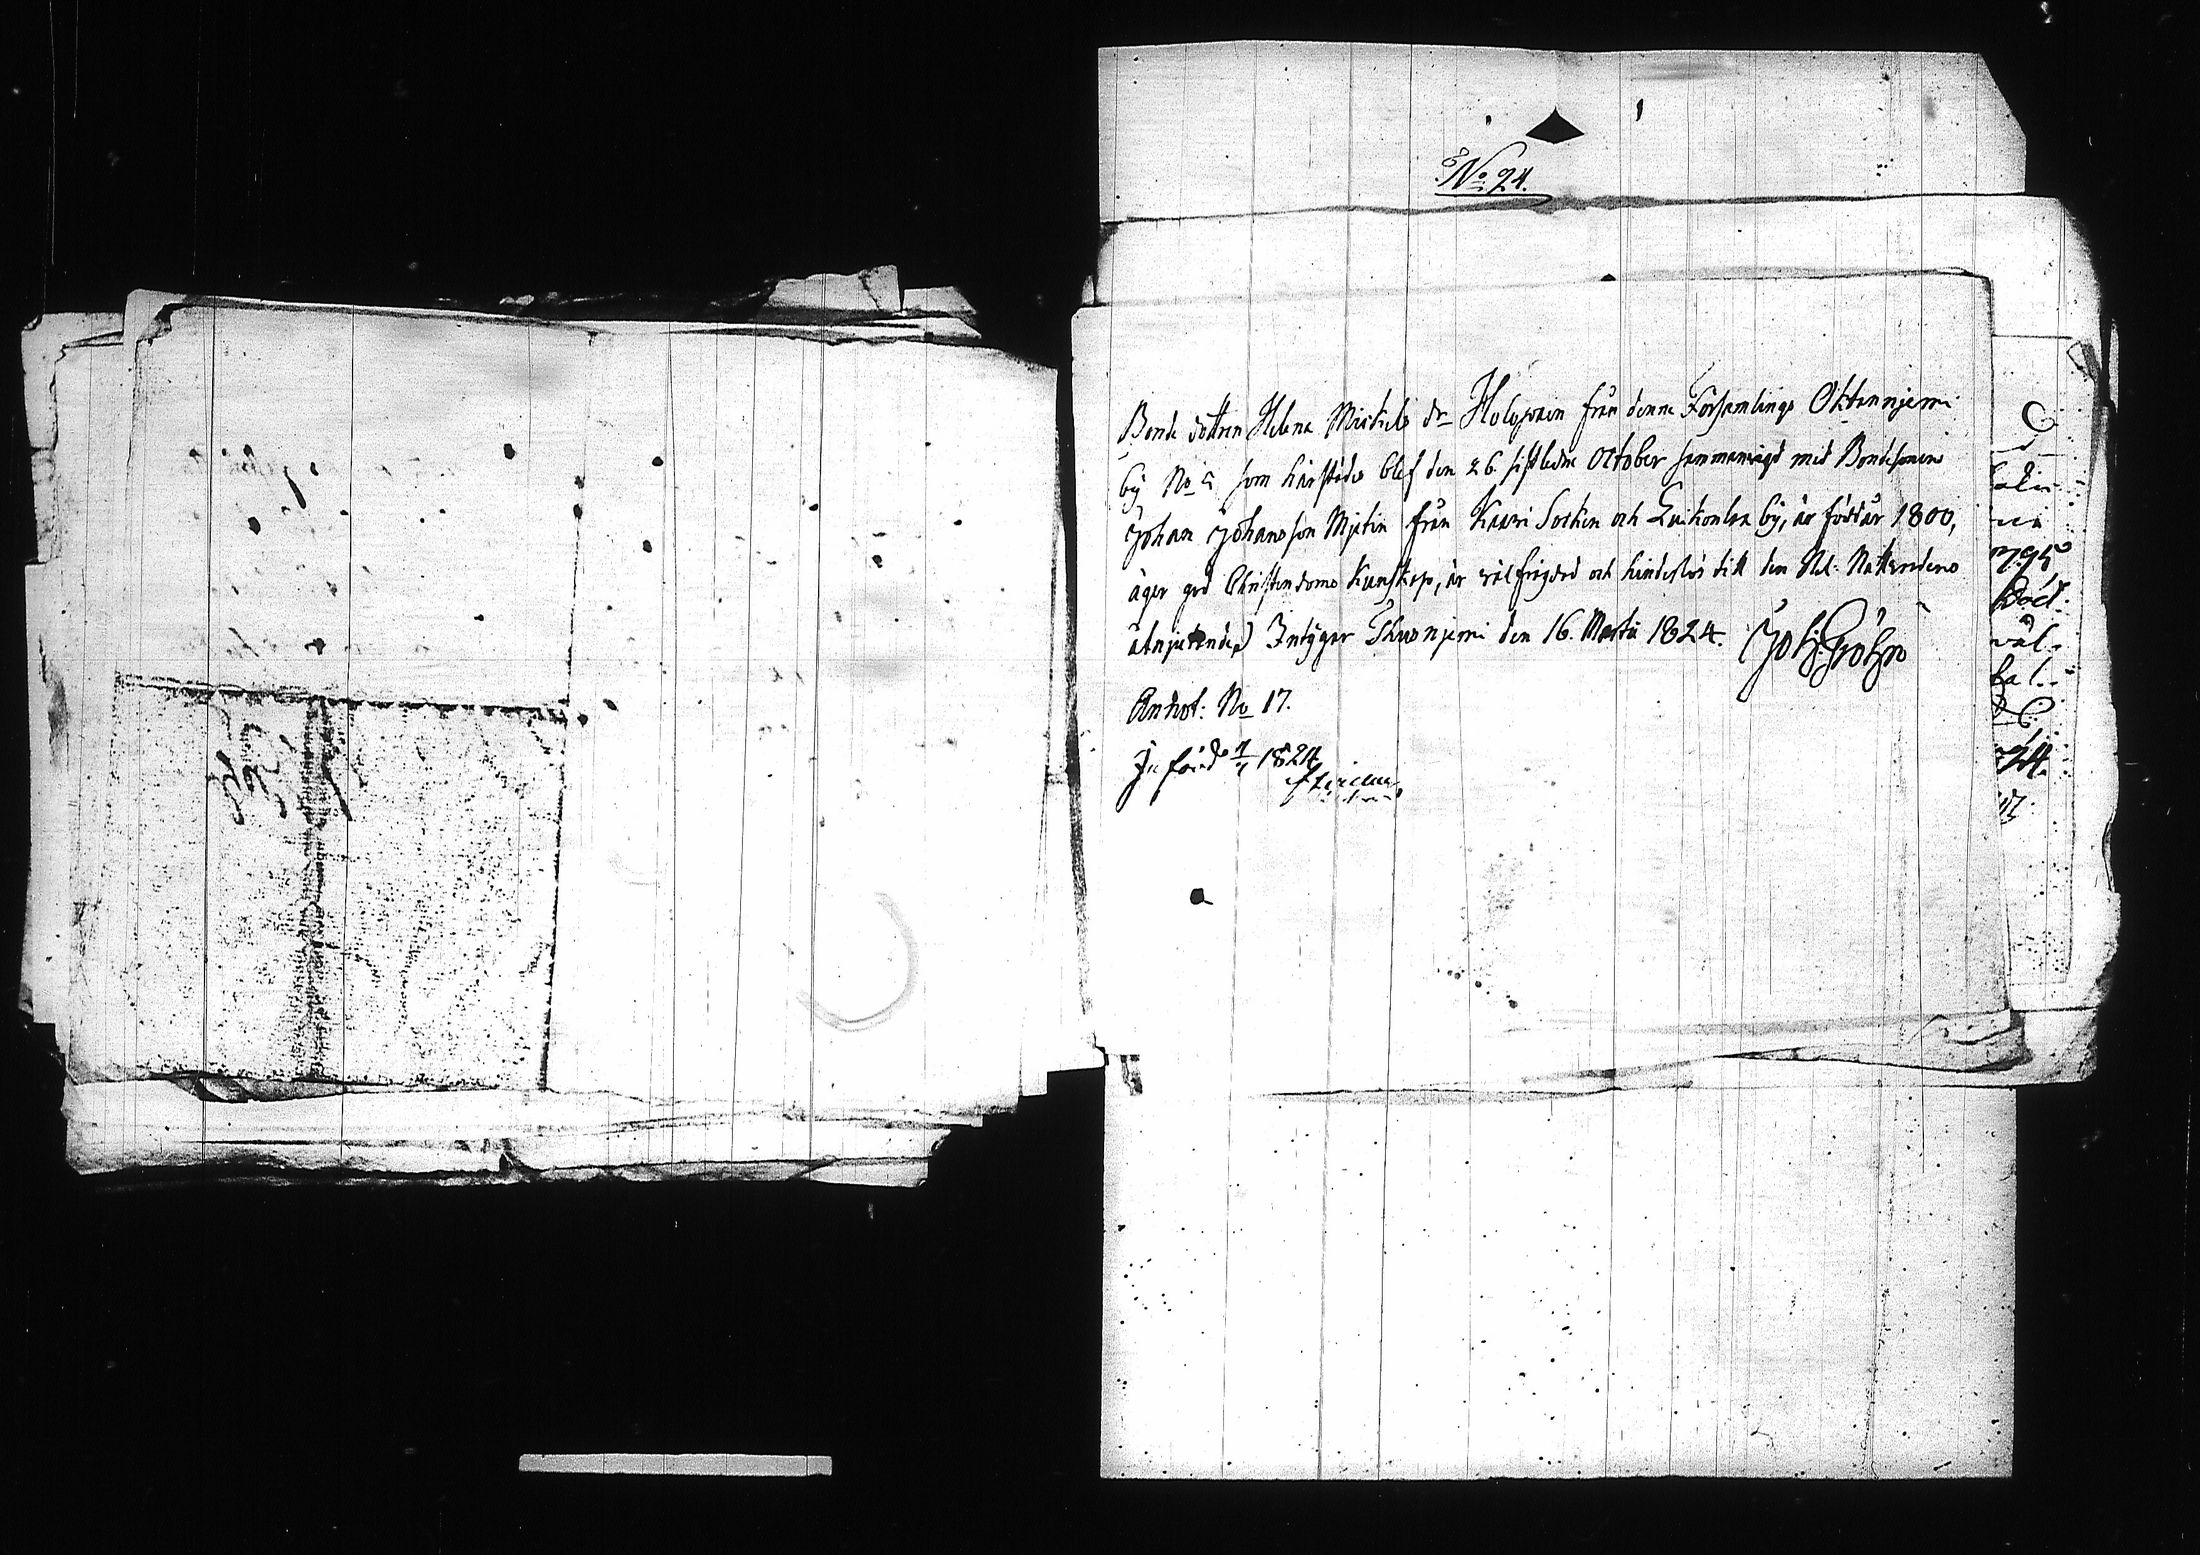 No 24.
Bonde dottren Helena Mickels dr Holopain från denna Församlings Oktanniemi
by No 5 som härstädes blef den 26 sistledne October sammanvigd med Bondesonen
Johan Johansson Mjetin från Kaavi Socken och Luikonlax by, är född år 1800,
äger god Christendoms Kunskap, är välfrägdad och hinderslös till den Hel. Nattvardens
åtnjutande, Intygar Thusniemi den 16. Martii 1824. Joh:
Annot: No 17.
Införd 1824